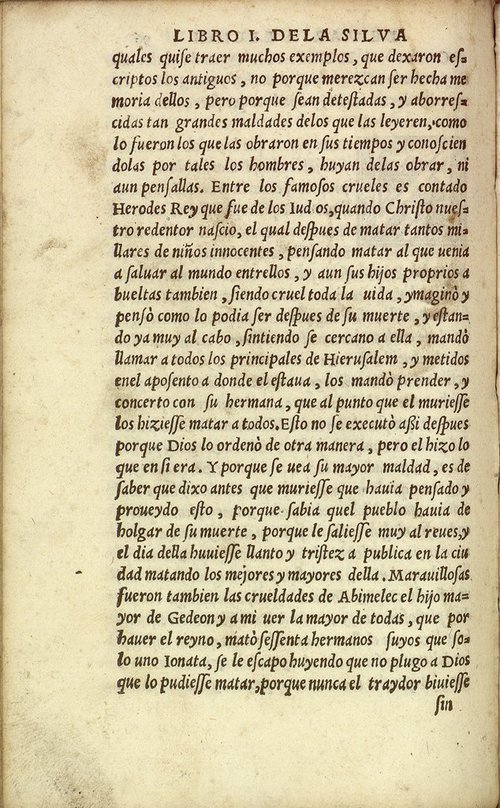 LIBRO I. DELA SILVA
quales quise traer muchos exemplos, que dexaron es-
criptos los antiguos, no porque merezcan ser hecha me
moria dellos, pero porque sean detestadas, y aborres-
cidas tan grandes maldades delos que las leyeren, como
lo fueron los que las obraron en sus tiempos y conoscien
dolas por tales los hombres, huyan delas obrar, ni
aun pensallas. Entre los famosos crueles es contado
Herodes Rey que fue de los Iud os, quando Christo nues-
tro redentor nascio, el qual despues de matar tantos mi-
llares de niños innocentes, pensando matar al que uenia
a saluar al mundo entrellos, y aun sus hijos proprios a
bueltas tambien, siendo cruel toda la uida, ymaginò y
pensò como lo podia ser despues de su muerte, y estan-
do ya muy al cabo, sintiendo se cercano a ella, mandò
llamar a todos los principales de Hierusalem, y metidos
enel aposento a donde el estaua, los mandò prender, y
concerto con su hermana, que al punto que el muriesse
los hiziesse matar a todos. Esto no se executò assi despues
porque Dios lo ordenò de otra manera, pero el hizo lo
que en si era. Y porque se uea su mayor maldad, es de
saber que dixo antes que muriesse que hauia pensado y
proueydo esto, porque sabia quel pueblo hauia de
holgar de su muerte, porque le saliesse muy al reues, y
el dia della huuiesse llanto y tristeza publica en la ciu
dad matando los mejores y mayores della. Marauillosas
fueron tambien las crueldades de Abimelec el hijo ma-
yor de Gedeon y a mi uer la mayor de todas, que por
hauer el reyno, matò sessenta hermanos suyos que so-
lo uno Ionata, se le escapo huyendo que no plugo a Dios
que lo pudiesse matar, porque nunca el traydor biuiesse
sin